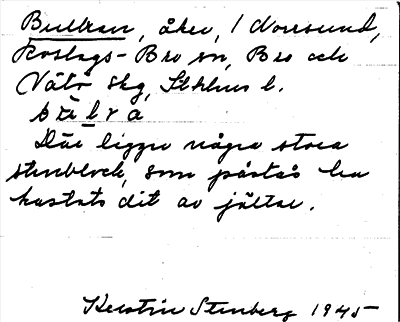 Bulkan, åker, i Norrsund,
Roslags-Bro sn, Bro och
Vätö skg, Sthlms l.
Där ligger några stora
stenblock, som påstås ha
kastats dit av jättar.
Kerstin Stenberg 1945